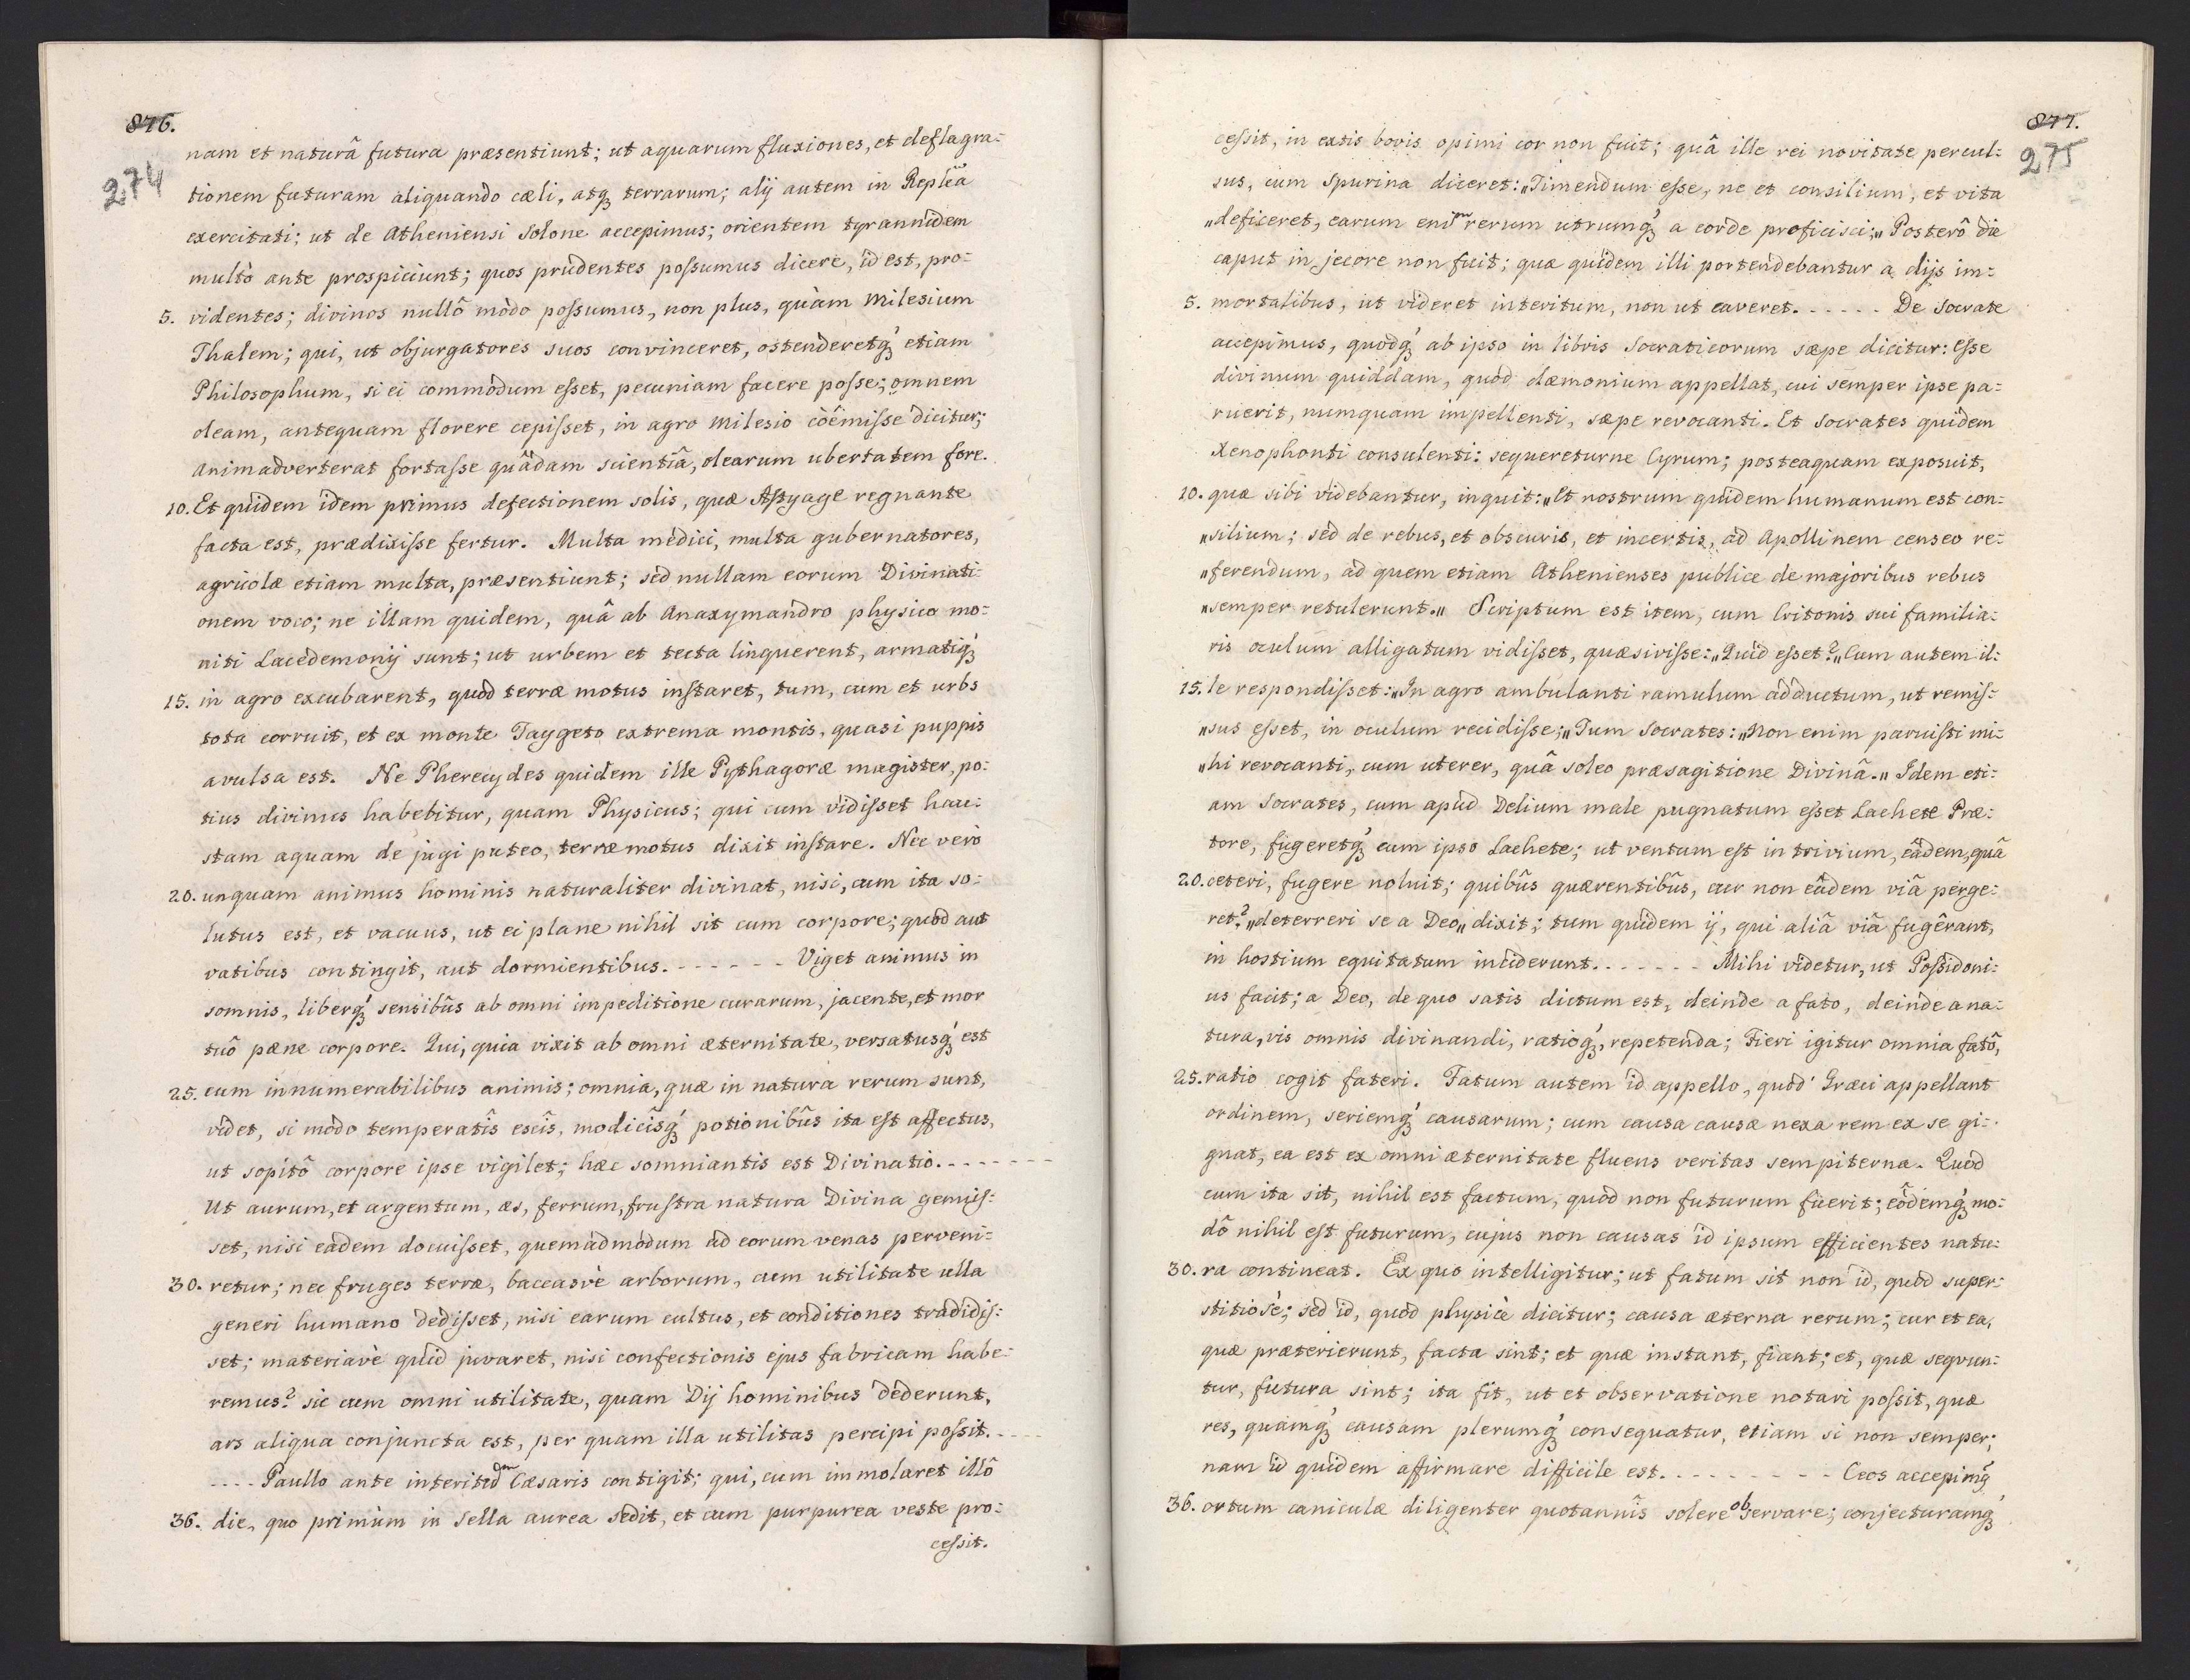 876.
274
nam et naturâ futura præsentiunt; ut aquarum fluxiones, et deflagra=
tionem futuram aliquando cæli, atq; terrarum; alij autem in Replĩa
exercitati; ut de Atheniensi Solone accepimus; orientem tyrannidem
multò ante prospiciunt; quos prudentes possumus dicere, id est, pro=
5. videntes; divinos nullô modo possumus, non plus, quàm Milesium
Thalem; qui, ut objurgatores suos convinceret, ostenderetq; etiam
Philosophum, si ei commodum esset, pecuniam facere posse; omnem
oleam, antequam florere cepisset, in agro Milesio coëmisse dicitur;
animadverterat fortasse quâdam scientiâ, olearum ubertatem fore.
10. Et quidem idem primus defectionem solis, quæ Astyage regnante
facta est, prædixisse fertur. Multa medici, multa gubernatores,
agricolæ etiam multa, præsentiunt; sed nullam eorum Divinati=
onem voco; ne illam quidem, quâ ab Anaxymandro physico mo=
niti Lacedemonij sunt; ut urbem et tecta linquerent, armatiq;
15. in agro excubarent, quod terræ motus instaret, tum, cum et urbs
tota corruit, et ex monte Taygeto extrema montis, quasi puppis
avulsa est. Ne Pherecydes quidem ille Pythagoræ magister, po=
tius divinus habebitur, quam Physicus; qui cum vidisset hau=
stam aquam de jugi puteo, terræ motus dixit instare. Nec verò
20. unquam animus hominis naturaliter divinat, nisi, cum ita so=
lutus est, et vacuus, ut ei plane nihil sit cum corpore; quod aut
vatibus contingit, aut dormientibus. - - - - - - Viget animus in
somnis, liberq; sensibûs ab omni impeditione curarum, jacente, et mor
tuô pæne corpore. Qui, quia vixit ab omni æternitate, versatusq; est
25. cum innumerabilibus animis; omnia, quæ in natura rerum sunt,
videt, si modo temperatîs escîs, modicîsq; potionibûs ita est affectus,
ut sopitô corpore ipse vigilet; hæc somniantis est Divinatio. - - - - - - -
Ut aurum, et argentum, æs, ferrum, frustra natura Divina genuis=
set, nisi eadem docuisset, quemadmodum ad eorum venas perveni=
30. retur; nec fruges terræ, baccasvè arborum, cum utilitate ulla
generi humano dedisset, nisi earum cultus, et conditiones tradidis=
set; materiavè quid juvaret, nisi confectionis ejus fabricam habe=
remus? sic cum omni utilitate, quam Dij hominibus dederunt,
ars aliqua conjuncta est, per quam illa utilitas percipi possit. - - -
- - - - Paullo ante interitum Cæsaris contigit; qui, cum immolaret illô
36. die, quo primùm in sella aurea sedit, et cum purpurea veste pro=
cessit.
877.
275
cessit, in extis bovis opimi cor non fuit; quâ ille rei novitate percul=
sus, cum Spurina diceret: „Timendum esse, ne et consilium, et vita
„deficeret, earum enim rerum utrumq; a corde proficisci;„ Posterô die
caput in jecore non fuit; quæ quidem illi portendebantur a dijs im=
5. mortalibus, ut videret interitum, non ut caveret. - - - - - De Socrate
accepimus, quodq; ab ipso in libris Socraticorum sæpe dicitur: Esse
divinum quiddam, quod dæmonium appellat, cui semper ipse pa=
ruerit, numquam impellenti, sæpe revocanti. Et Socrates quidem
Xenophonti consulenti: sequereturne Cyrum; posteaquam exposuit,
10. quæ sibi videbantur, inquit: „Et nostrum quidem humanum est con=
„silium; sed de rebus, et obscuris, et incertis, ad Apollinem censeo re=
„ferendum, ad quem etiam Athenienses publice de majoribus rebus
„semper retulerunt.„ Scriptum est item, cum Critonis sui familia=
ris oculum alligatum vidisset, quæsivisse: „Quid esset?„ Cum autem il=
15. le respondisset: „In agro ambulanti ramulum adductum, ut remis=
„sus esset, in oculum recidisse;„ Tum Socrates: „Non enim paruisti mi=
„hi revocanti, cum uterer, quâ soleo præsagitione Divinâ.„ Idem eti=
am Socrates, cum apud Delium male pugnatum esset Lachete Præ=
tore, fugeretq; cum ipso Lachete; ut ventum est in trivium, eâdem, quâ
20. ceteri, fugere noluit; quibûs quærentibûs, cur non eâdem viâ perge=
ret? „deterreri se a Deo„ dixit; tum quidem ij, qui aliâ viâ fugêrant,
in hostium equitatum inciderunt. - - - - - - Mihi videtur, ut Possidoni=
us facit; a Deo, de quo satis dictum est, deinde a fato, deinde a na=
tura, vis omnis divinandi, ratioq;, repetenda; Fieri igitur omnia fatô,
25. ratio cogit fateri. Fatum autem id appello, quod Græci appellant
ordinem, seriemq; causarum; cum causa causæ nexa rem ex se gi=
gnat, ea est ex omni æternitate fluens veritas sempiterna. Quod
cum ita sit, nihil est factum, quod non futurum fuerit; eôdemq; mo=
dô nihil est futurum, cujus non causas id ipsum efficientes natu=
30. ra contineat. Ex quo intelligitur; ut fatum sit non id, quod super=
stitiosè; sed id, quod physicè dicitur; causa æterna rerum; cur et ea,
quæ præterierunt, facta sint; et quæ instant, fiant; et, quæ sequun=
tur, futura sint; ita fit, ut et observatione notari possit, quæ
res, quamq; causam plerumq; consequatur, etiam si non semper;
nam id quidem affirmare difficile est. - - - - - - - - - Ceos accepimq
36. ortum caniculæ diligenter quotannîs solere observare; conjecturamq;